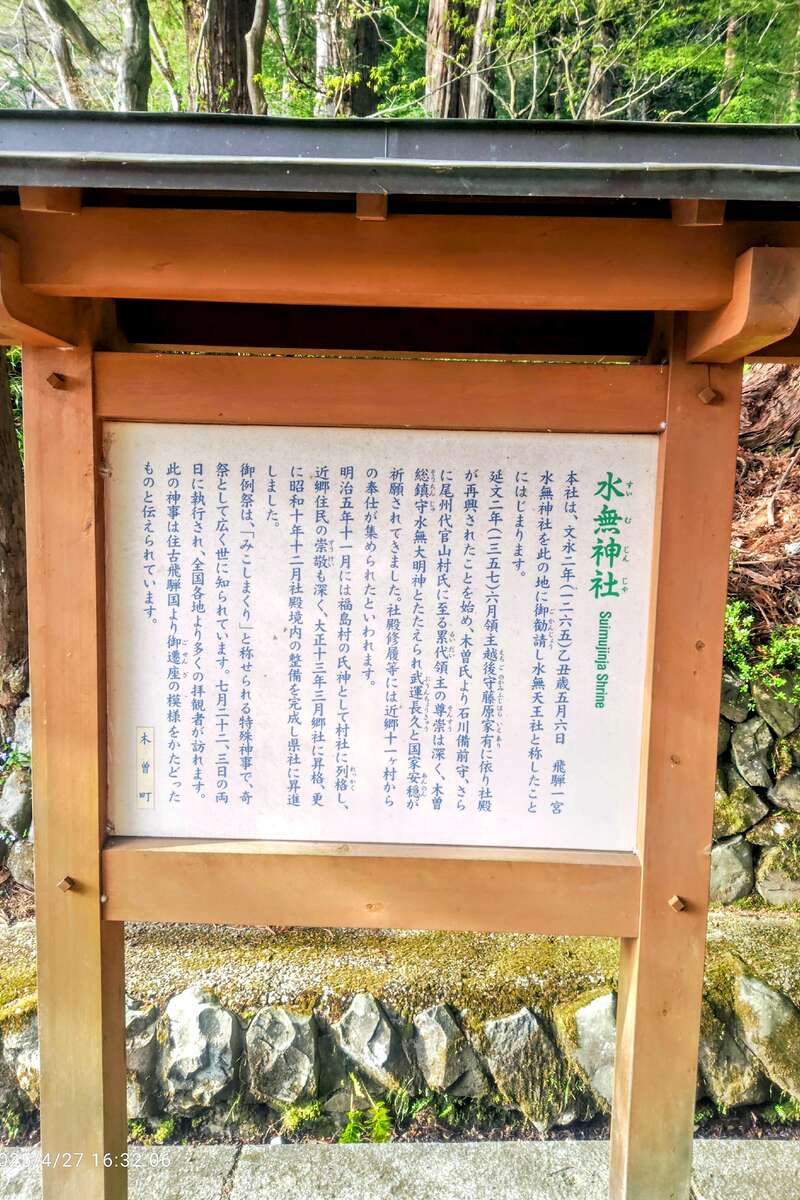 水無神社
すいむじんじゃ
Suimujinja Shrine
本社は、文永二年(一二六五)乙丑歳五月六日　飛騨一宮
水無神社を此の地に御勧請し水無天王社と称したこと
にはじまります。
延文二年(一三五七)六月領主越後守藤原家有に依り社殿
が再興されたことを始め、木曽氏より石川備前守、さら
に尾州代官山村氏に至る累代領主の尊崇は深く、木曽
総鎮守水無大明神とたたえられ武運長久と国家安穏が
祈願されてきました。社殿修履等には近郷十一ヶ村から
の奉仕が集められたといわれます。
明治五年十一月には福島村の氏神として村社に列格し、
近郷住民の崇敬も深く、大正十三年三月郷社に昇格、更
に昭和十年十二月社殿境内の整備を完成し県社に昇進
しました。
御例祭は、「みこしまくり」と称せられる特殊神事で、奇
祭として広く世に知られています。七月二十二、三日の両
日に執行され、全国各地より多くの拝観者が訪れます。
此の神事は往古飛騨国より御遷座の模様をかたどった
ものと伝えられています。
木曽町
4/27 16:32:06